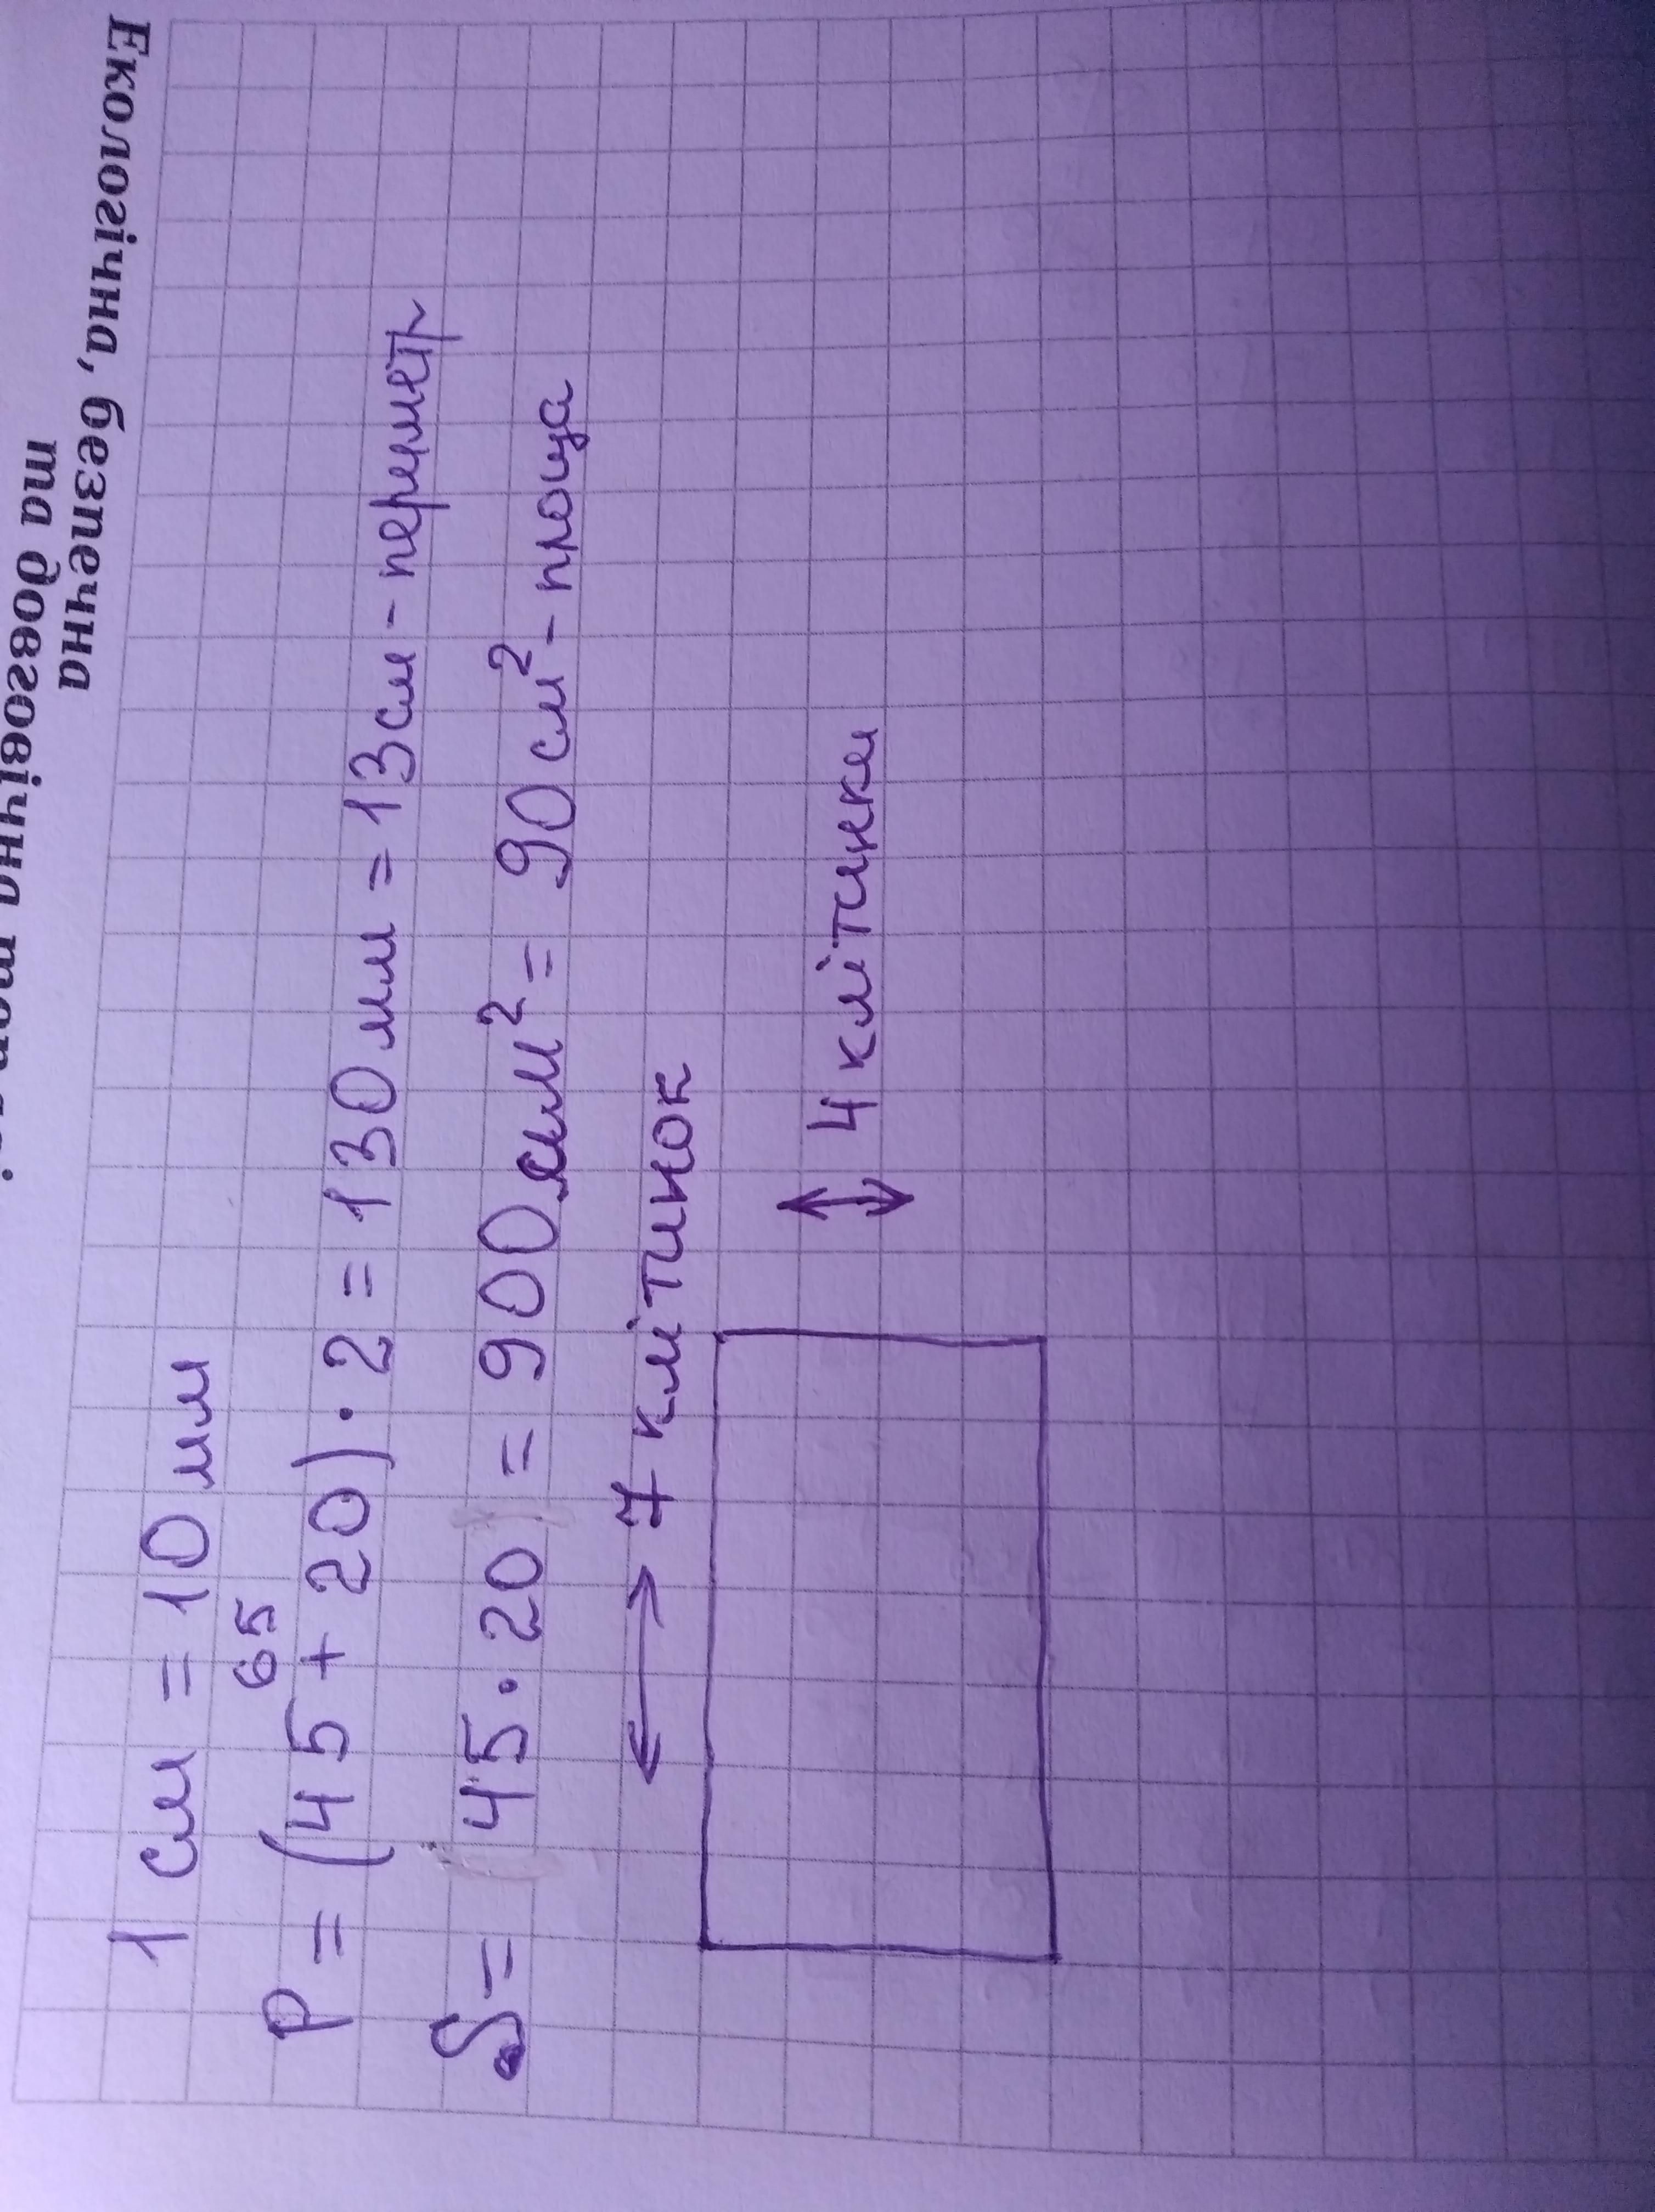 Екологічна, безпечна
та довговічна
1 см = 10 мм
65
P = (45 + 20) · 2 = 130 мм = 13 см - периметр
S = 45 · 20 = 900 мм² = 90 см² - площа
7 клітинок
4 клітинки